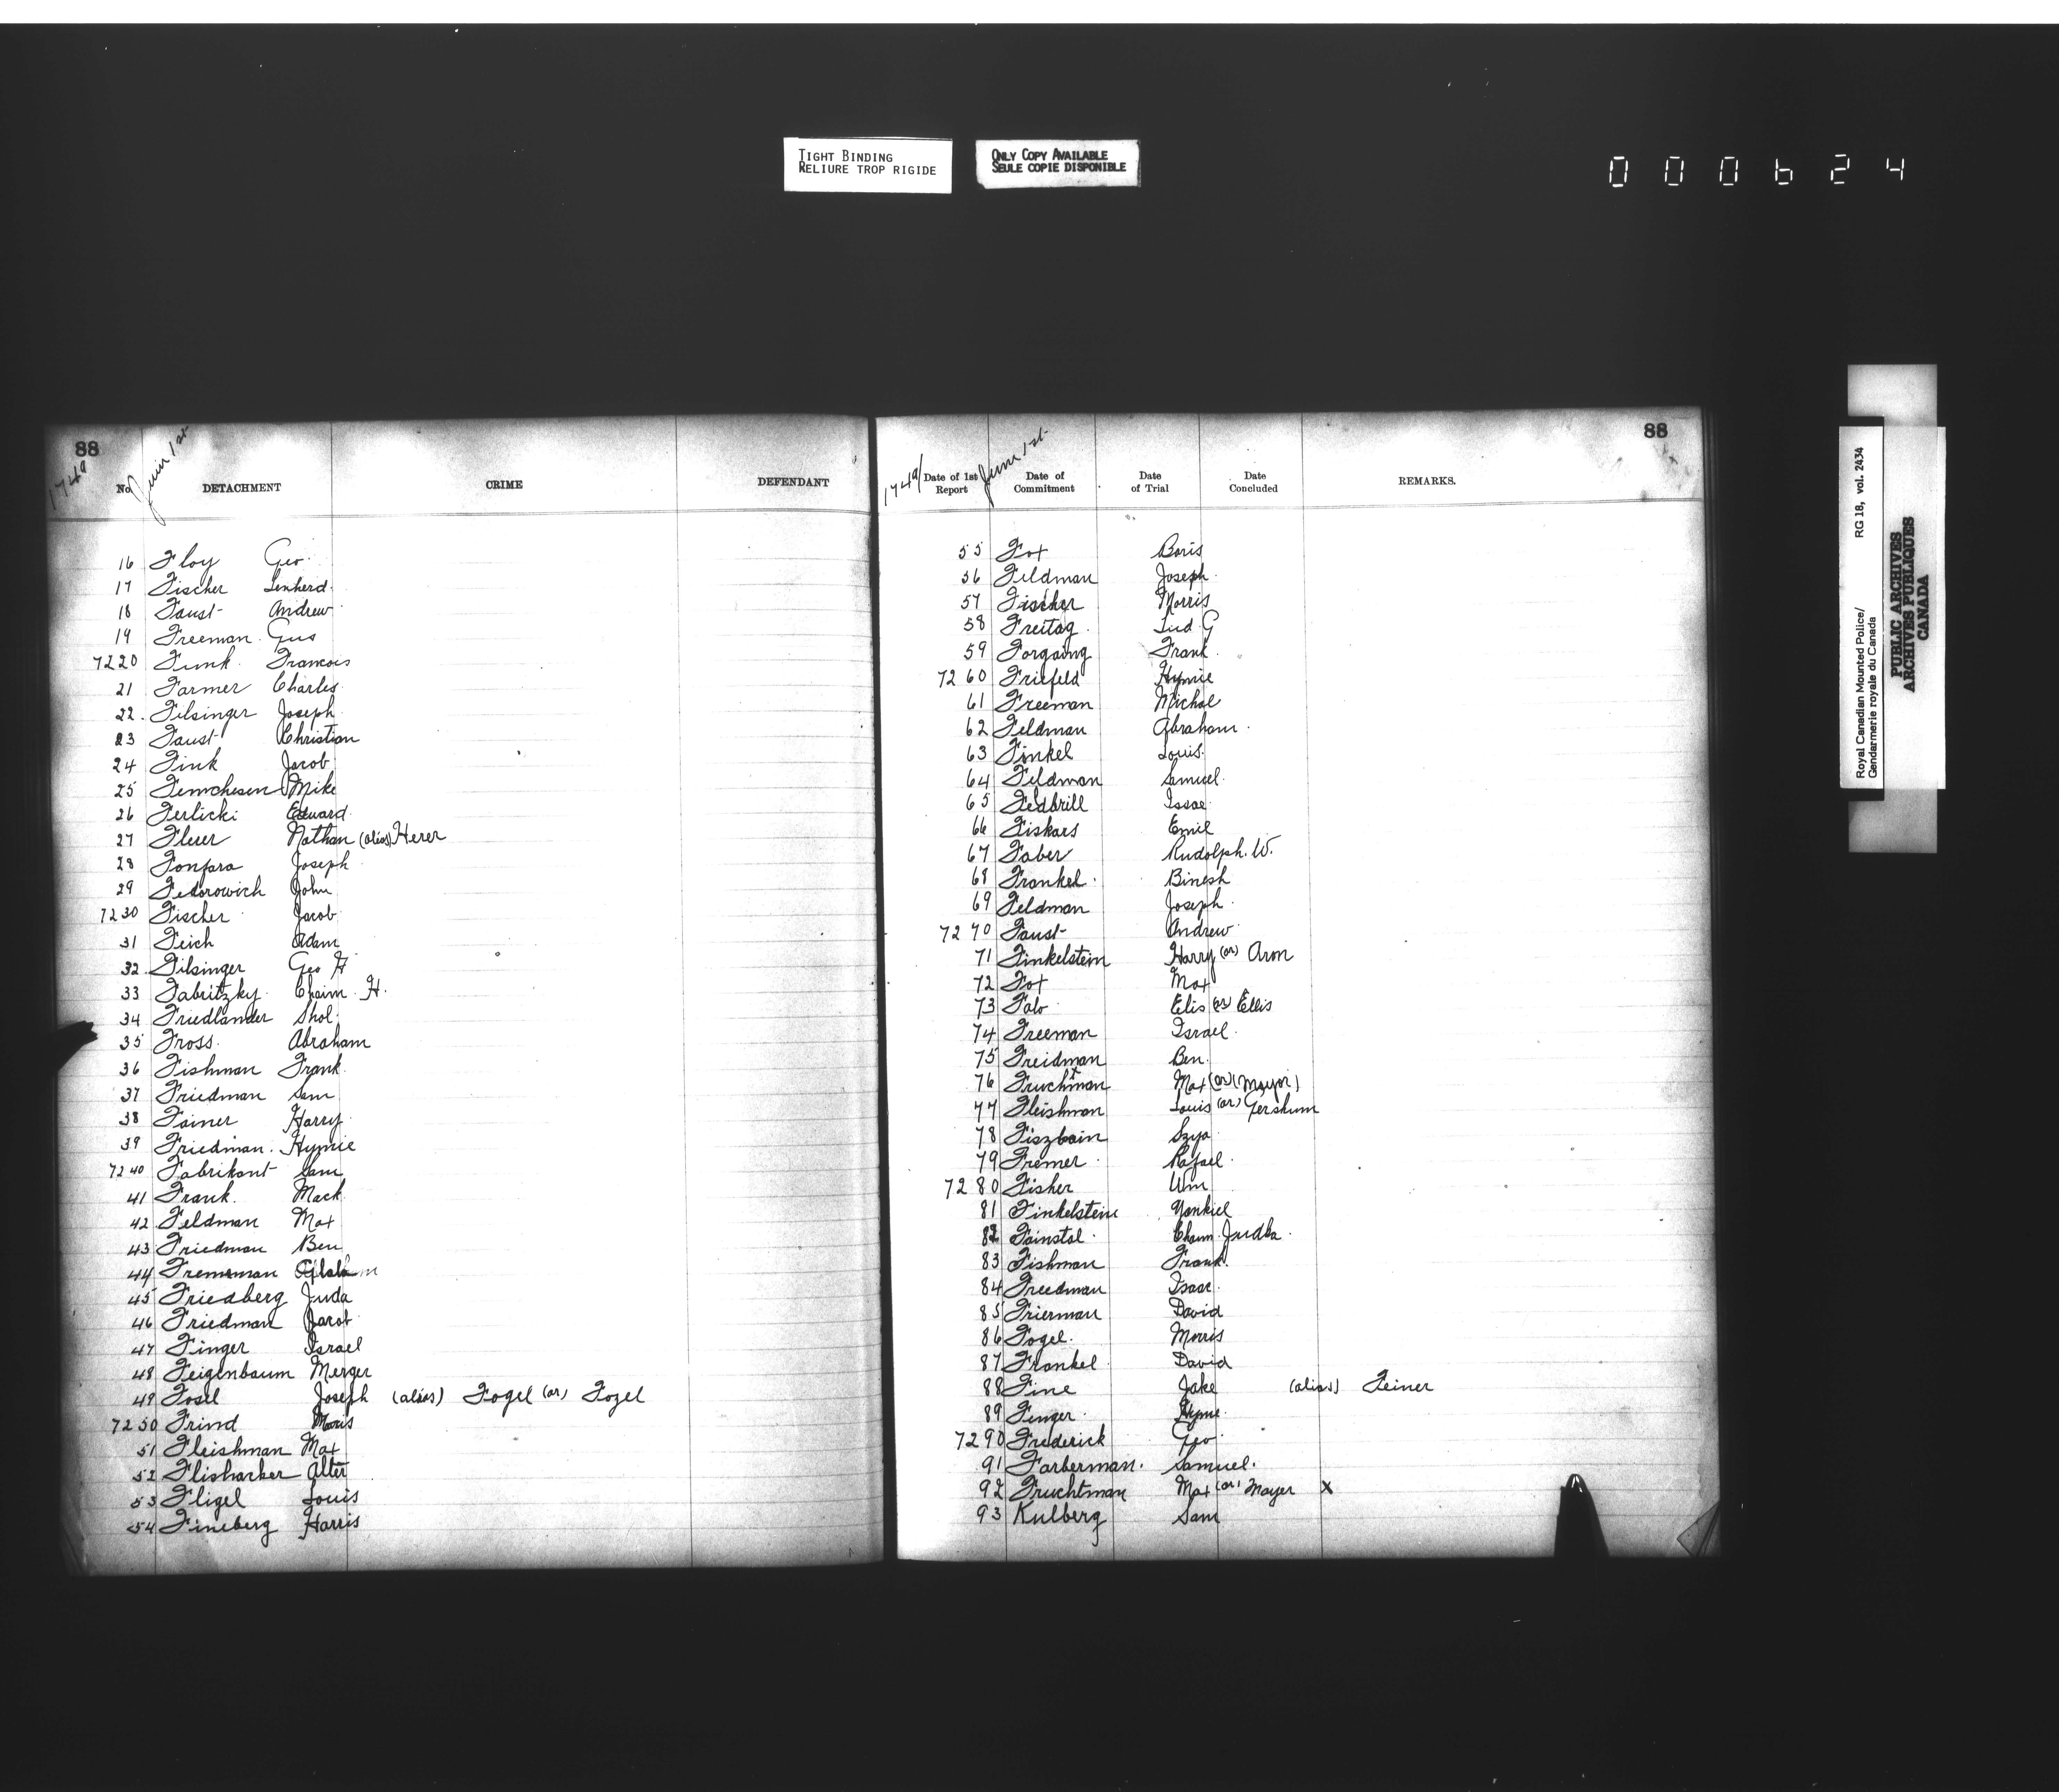 TIGHT BINDING
RELIURE TROP RIGIDE
ONLY COPY AVAILABLE
SEULE COPIE DISPONIBLE
000624
88
No DETACHMENT CRIME DEFENDANT
16 Floy Geo.
17 Fischer Lenherd.
18 Faust Andrew
19 Freeman Gus
7220 Funk Francois
21 Farmer Charles
22 Filsinger Joseph
23 Faust Christian
24 Fink Jacob
25 Femchesen Mike
26 Ferlicki Edward
27 Fleur Nathan (alias) Herer
28 Fonfara Joseph
29 Fedorowich John
7230 Fischer Jacob
31 Feich Adam
32 Filsinger Geo H
33 Fabritzky Chaim H.
34 Friedlander Shol
35 Fross. Abraham
36 Fishman Frank
37 Friedman Sam
38 Fainer Harry
39 Friedman. Hymie
7240 Fabrikant Sam
41 Frank. Mack
42 Feldman Max
43 Friedman Ben
44 Frememan
45 Friedberg Juda
46 Friedman Jacob
47 Finger Israel
48 Feigenbaum Merger
49 Fosel Joseph (alias) Fogel (or) Fozel
7250 Frind Moris
51 Fleishman Max
52 Flisharker Alter
53 Fligel Louis
54 Fineberg Harris
88
1749 June 1st
Date of 1st Report Date of Commitment Date of Trial Date Concluded REMARKS.
55 Fox Boris
56 Feldman Joseph
57 Fischer Morris
58 Freitag Lud G
59 Forgaing Frank
7260 Friefeld Hymie
61 Freeman Michal
62 Feldman Abraham
63 Finkel Louis
64 Feldman Samuel
65 Fedbrill Issac
66 Fiskars Emil
67 Faber Rudolph. W.
68 Frankel Binesh
69 Feldman Joseph
7270 Faust Andrew
71 Finkelstein Harry (or) Aron
72 Fox Max
73 Fab Elis (or) Ellis
74 Freeman Israel
75 Freidman Ben
76 Fruchtman Max (or) (Mayor)
77 Fleishman Louis (or) Gershum
78 Fiszbain Szya
79 Fremer Rafael
7280 Fisher Wm
81 Finkelstein Yankiel
82 Fainstal Chaim Judka
83 Fishman Frank.
84 Freedman Isaac
85 Frierman David
86 Fogel. Morris
87 Frankel David
88 Fine Jake (alias) Feiner
89 Finger Hyme
7290 Frederick Geo
91 Farberman. Samuel.
92 Fruchtman Max (or) Mayer X
93 Kulberg Sam
Royal Canadian Mounted Police/ RG 18, vol. 2434
Gendarmerie royale du Canada
PUBLIC ARCHIVES
ARCHIVES PUBLIQUES
CANADA